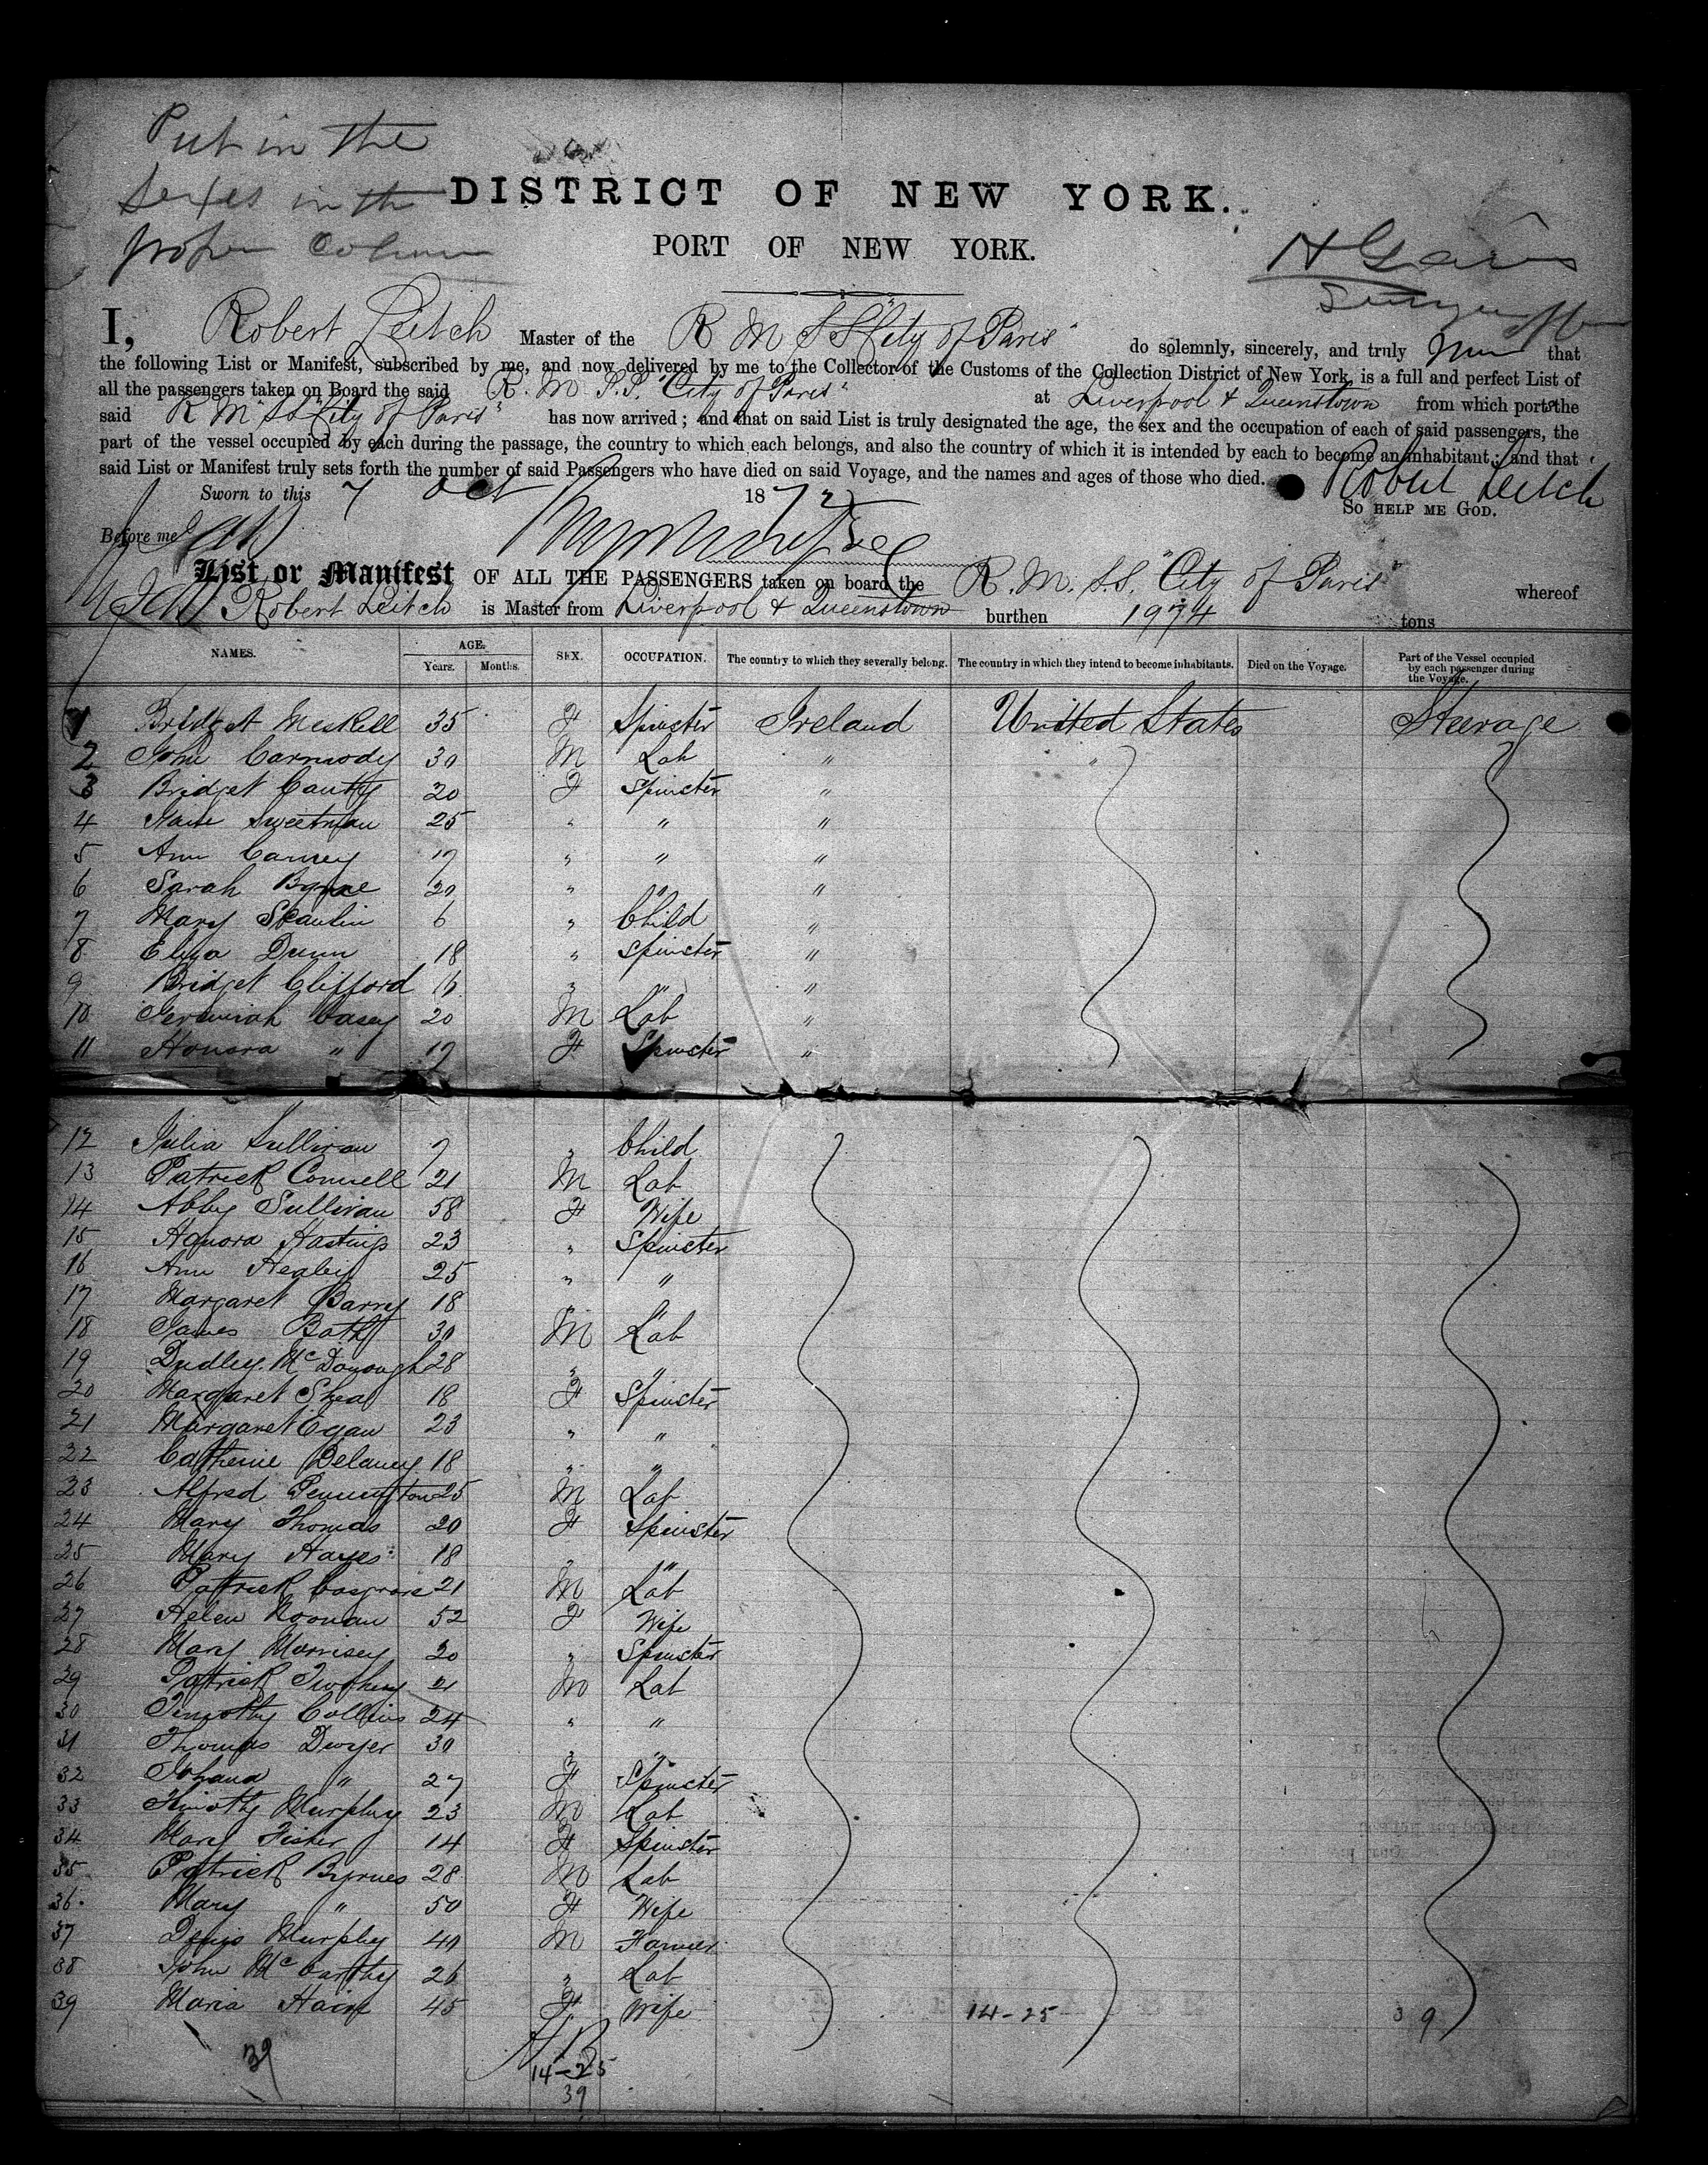 Put in the
Sexes in the
proper Column
DISTRICT OF NEW YORK.
PORT OF NEW YORK.
I, Robert Leitch Master of the R M S S "City of Paris" do solemnly, sincerely, and truly that
the following List or Manifest, subscribed by me, and now delivered by me to the Collector of the Customs of the Collection District of New York, is a full and perfect List of
all the passengers taken on Board the said R. M S.S. "City of Paris" at Liverpool & Queenstown from which ports the
said R M S S "City of Paris" has now arrived ; and that on said List is truly designated the age, the sex and the occupation of each of said passengers, the
part of the vessel occupied by each during the passage, the country to which each belongs, and also the country of which it is intended by each to become an inhabitant ; and that
said List or Manifest truly sets forth the number of said Passengers who have died on said Voyage, and the names and ages of those who died. Robert Leitch
Sworn to this 7 Oct 187 SO HELP ME GOD.
Before me
List or Manifest OF ALL THE PASSENGERS taken on board the R. M. S.S. "City of Paris" whereof
Robert Leitch is Master from Liverpool & Queenstown burthen 1974 tons
NAMES. AGE. Years. Months. SEX. OCCUPATION. The country to which they severally belong. The country in which they intend to become inhabitants. Died on the Voyage. Part of the Vessel occupied by each passenger during the Voyage.
1 Bridget Meskell 35 F Spinster Ireland United States Steerage
2 John Carmody 30 M Lab " "
3 Bridget 20 F Spinster "
4 Sweetman 25 " " "
5 Ann 17 " " "
6 Sarah Byrne 20 " " "
7 Mary Scanlin 6 " Child "
8 Eliza Dunn 18 " Spinster "
9 Bridget Clifford 16 " " "
10 Jeremiah Casey 20 M Lab "
11 Honora " 19 F Spinster "
12 Julia Sullivan 7 " Child
13 Patrick Connell 21 M Lab
14 Abby Sullivan 58 F Wife
15 Honora Hastings 23 " Spinster
16 Ann Healey 25 " "
17 Margaret Barry 18 " "
18 James Bath 30 M Lab
19 Dudley McDonough 28 " "
20 Margaret Shea 18 F Spinster
21 Margaret Egan 23 " "
22 Catherine Delaney 18 " "
23 Alfred Pennington 25 M Lab
24 Mary Thomas 20 F Spinster
25 Mary Hayes 18 " "
26 Patrick Cosgrave 21 M Lab
27 Helen Noonan 52 F Wife
28 Mary Morrisey 20 " Spinster
29 Patrick Twohey 21 M Lab
30 Timothy Collins 24 " "
31 Thomas Dwyer 30 " "
32 Johana " 27 F Spinster
33 Timothy Murphy 23 M Lab
34 Mary Fisher 14 F Spinster
35 Patrick Byrnes 28 M Lab
36 Mary " 50 F Wife
37 Denis Murphy 40 M Farmer
38 John McCarthy 26 " Lab
39 Maria 45 F Wife 14-25 39
39
14-25
39